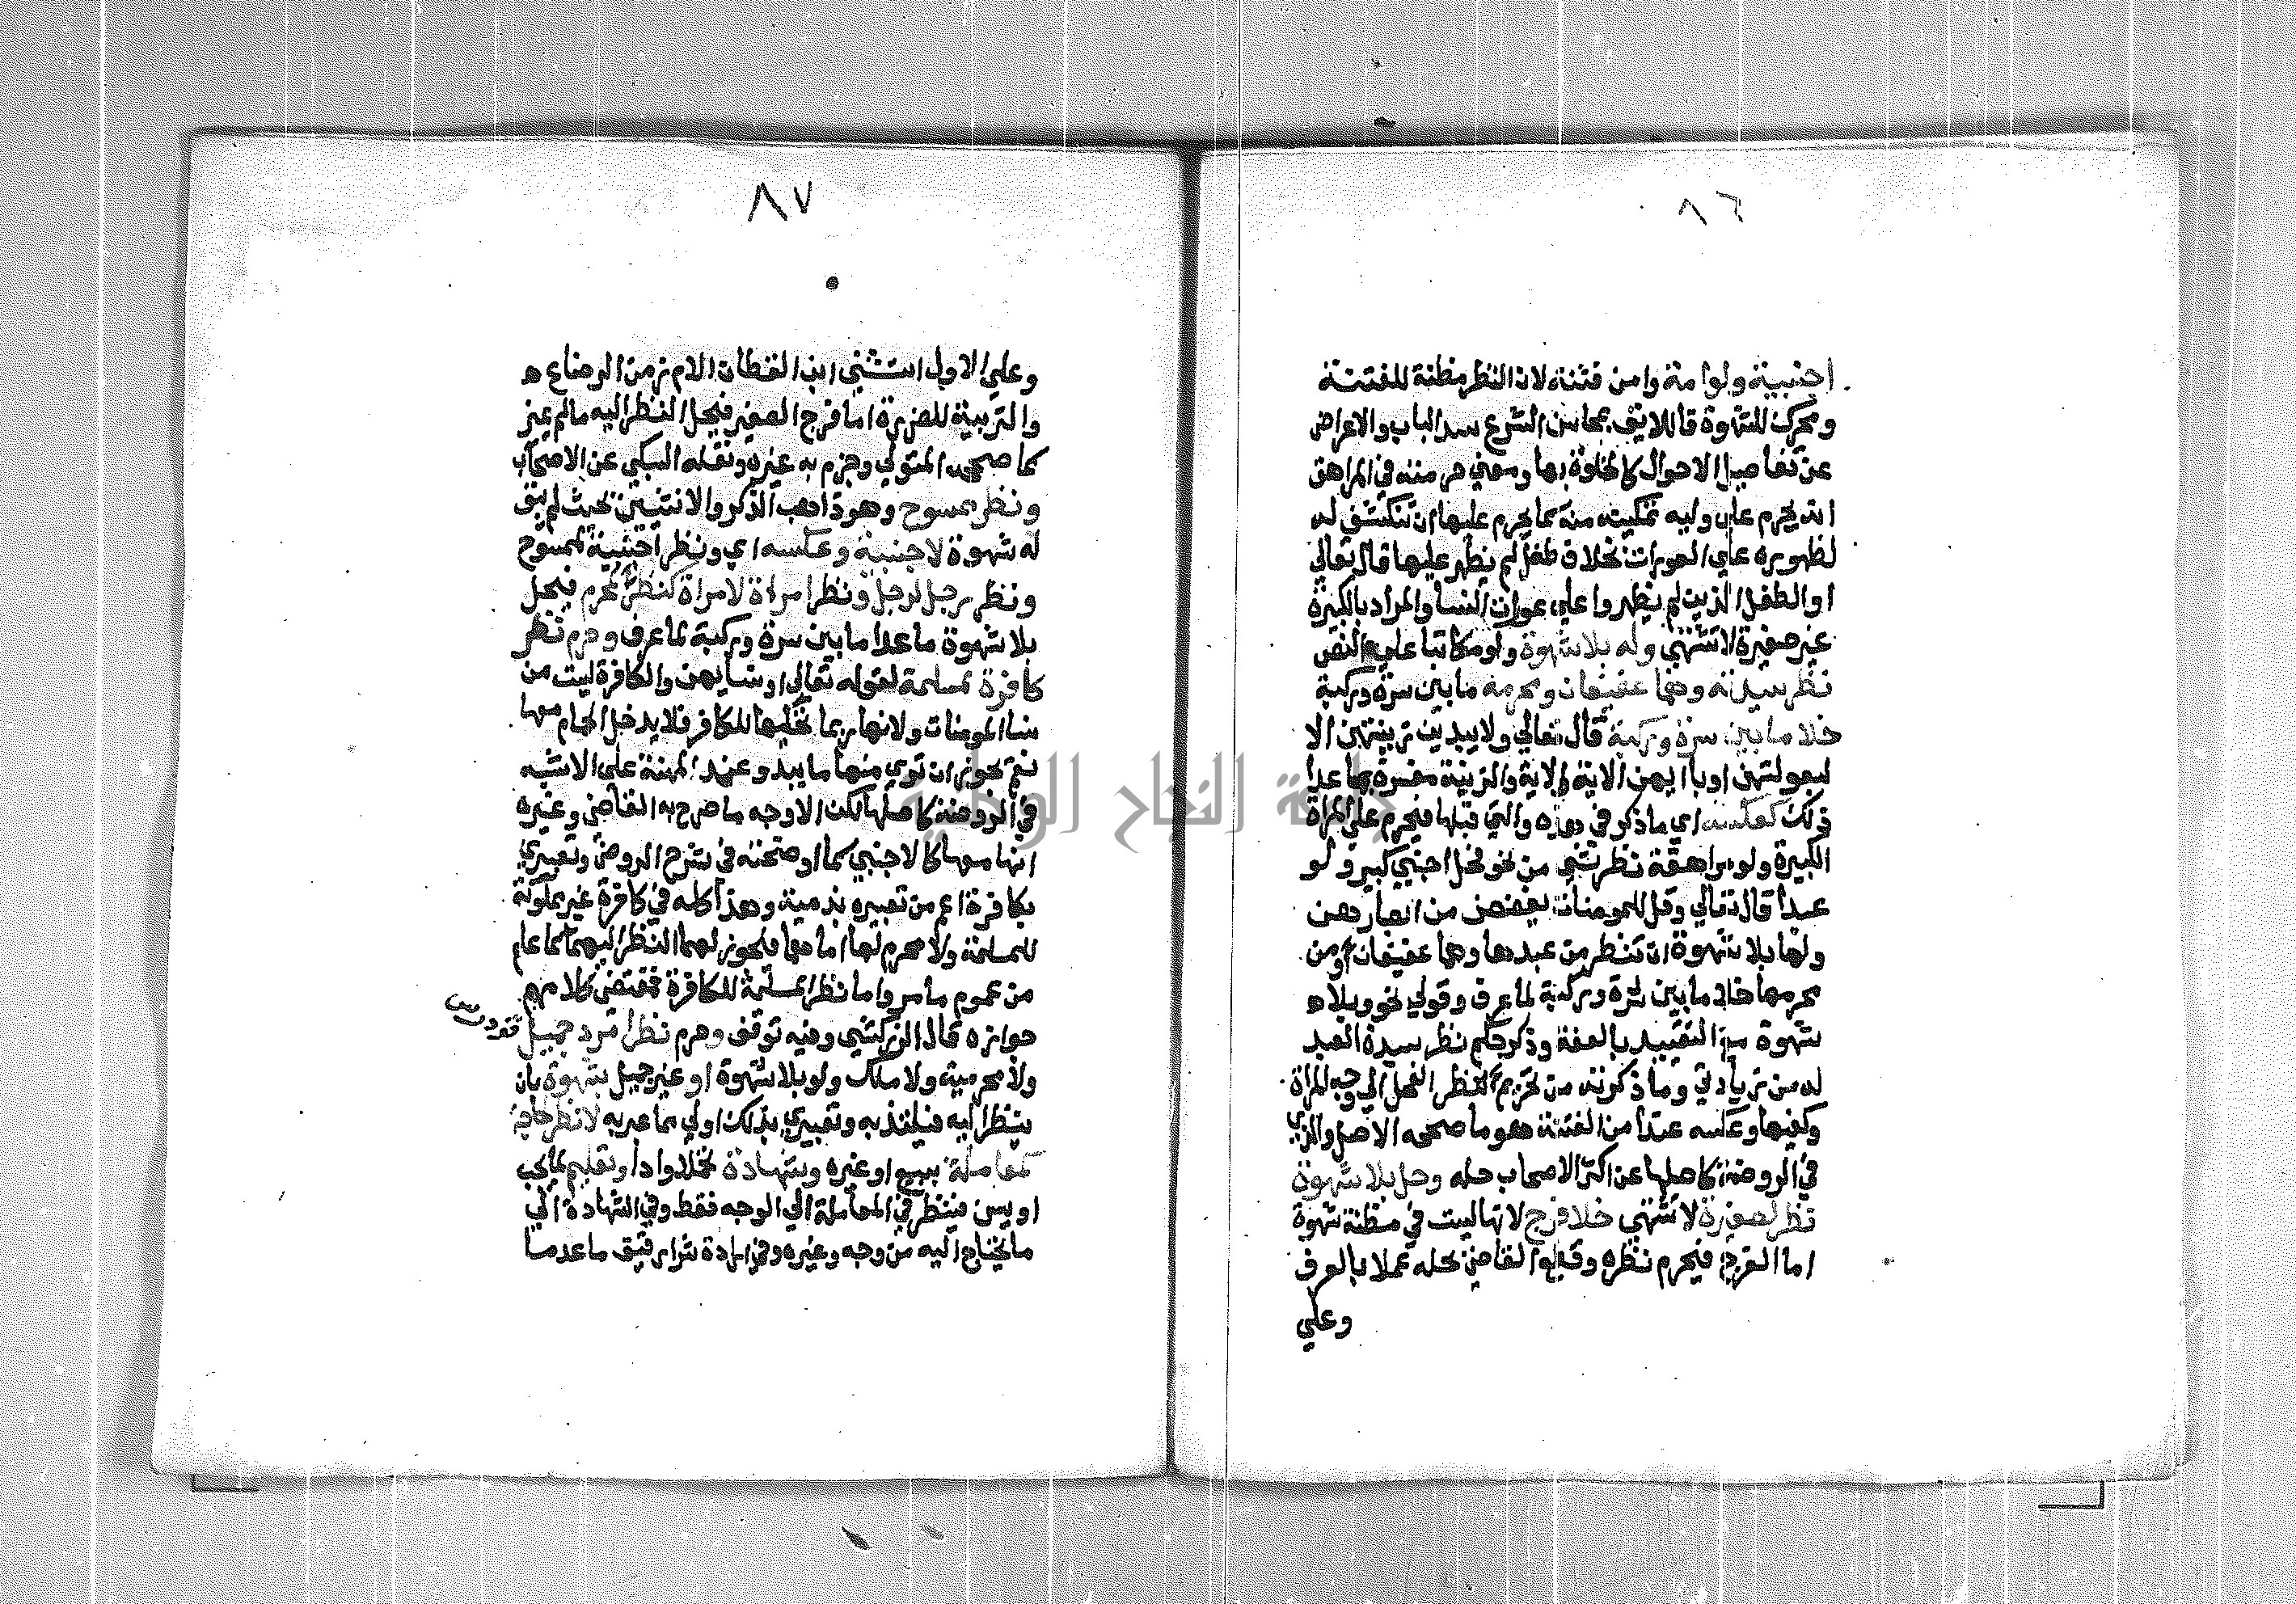 ٨٦
اجنبية ولوامة وامن فتنة لان النظر مظنة للفتنة
ومحرك للشهوة فاللايق بمحاسن الشرع سد الباب والاعراض
عن تفاصيل الاحوال كالخلوة بها ومعني حرمته في المراهق
انه يحرم علي وليه تمكينه منه كما يحرم عليها ان تنكشف له
لظهوره علي العورات بخلاف طفل لم يظهر عليها قال تعالي
او الطفل الذين لم يظهروا علي عورات النسا والمراد بالكبيرة
غير صغيرة لا تشتهي وله بلا شهوة ولو مكاتبا علي النص
نظر سيدته وهما عفيفان ومحرمه ما بين سرة وركبة
خلا ما بين سرة وركبة قال تعالي ولا يبدين زينتهن الا
لبعولتهن او ابايهن الاية والزينة مفسرة بما عدا
ذلك كعكسه اي ما ذكر في هذه والتي قبلها فيحرم علي المراة
الكبيرة ولو مراهقة نظر شي من نحو فحل اجنبي كبير ولو
عبدا قال تعالي وقل للمومنات يغضضن من ابصارهن
ولها بلا شهوة ان تنظر من عبدها وهما عفيفان او من
محرمها خلا ما بين سرة وركبة لما عرف وقولي نحو وبلا
شهوة مع التقييد بالعفة وذكر حكم نظر سيدة العبد
له من زيادتي وما ذكرته من تحريم نظر الفحل الي وجه المراة
وكفيها وعكسه عند امن الفتنة هو ما صححه الاصل والذي
في الروضة كاصلها عن اكثر الاصحاب حله وحل بلا شهوة
نظر لصغيرة لا تشتهي خلا فرج لانها ليست في مظنة شهوة
اما الفرج فيحرم نظره وقطع القاضي بحله عملا بالعرف
وعلي
٨٧
وعلي الاول استثني ابن القطان الام زمن الرضاع
والتربية للضرورة اما فرج الصغير فيحل النظر اليه ما لم يميز
كما صححه المتولي وجزم به غيره ونقله السبكي عن الاصحاب
ونظر ممسوح وهو ذاهب الذكر والانثيين بحيث لم يبق
له شهوة لاجنبية وعكسه اي ونظر اجنبية لممسوح
ونظر رجل لرجل ونظر امراة لامراة كنظر لمحرم فيحل
بلا شهوة ما عدا ما بين سرة وركبة لما عرف وحرم نظر
كافرة لمسلمة لقوله تعالي او نسايهن والكافرة ليست من
نسا المومنات ولانها ربما تحكيها للكافر فلا يدخل الحمام معها
نعم يجوز ان تري منها ما يبدو عند المهنة علي الاشبه
في الروضة كاصلها لكن الاوجه ما صرح به القاضي وغيره
انها معها كالاجنبي كما اوضحته في شرح الروض وتعبيري
بكافرة اعم من تعبيره بذمية وهذا كله في كافرة غير مملوكة
للمسلمة ولا محرم لها اما هما فيجوز لهما النظر اليهما كما علم
من عموم ما مر واما نظر المسلمة للكافرة فمقتضي كلامهم
جوازه قال الزركشي وفيه توقف وحرم نظر امرد جميل
ولا محرمية ولا ملك ولو بلا شهوة او غير جميل بشهوة بان
ينظر اليه فيلتذ به وتعبيري بذلك اولي مما عبر به لا نظر لحاجة
كمعاملة ببيع او غيره وشهادة تحملا واداء وتعليم لما يجب
او يسن فينظر في المعاملة الي الوجه فقط وفي الشهادة الي
ما يحتاج اليه من وجه وغيره وفي ارادة شراء رقيق ما عدا ما
جامعة النجاح الوطنية